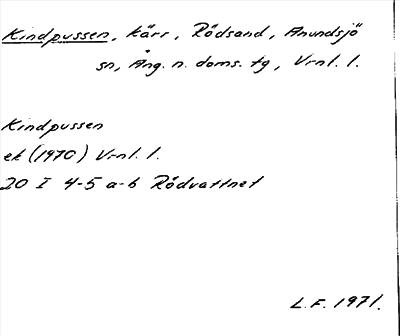 Kindpussen, kärr, Rödsand, Anundsjö
sn, Ång. n. doms. tg, Vrnl. l.
Kindpussen
ek (1970) Vrnl. l.
20 I 4-5 a-b Rödvattnet
L.F. 1971.